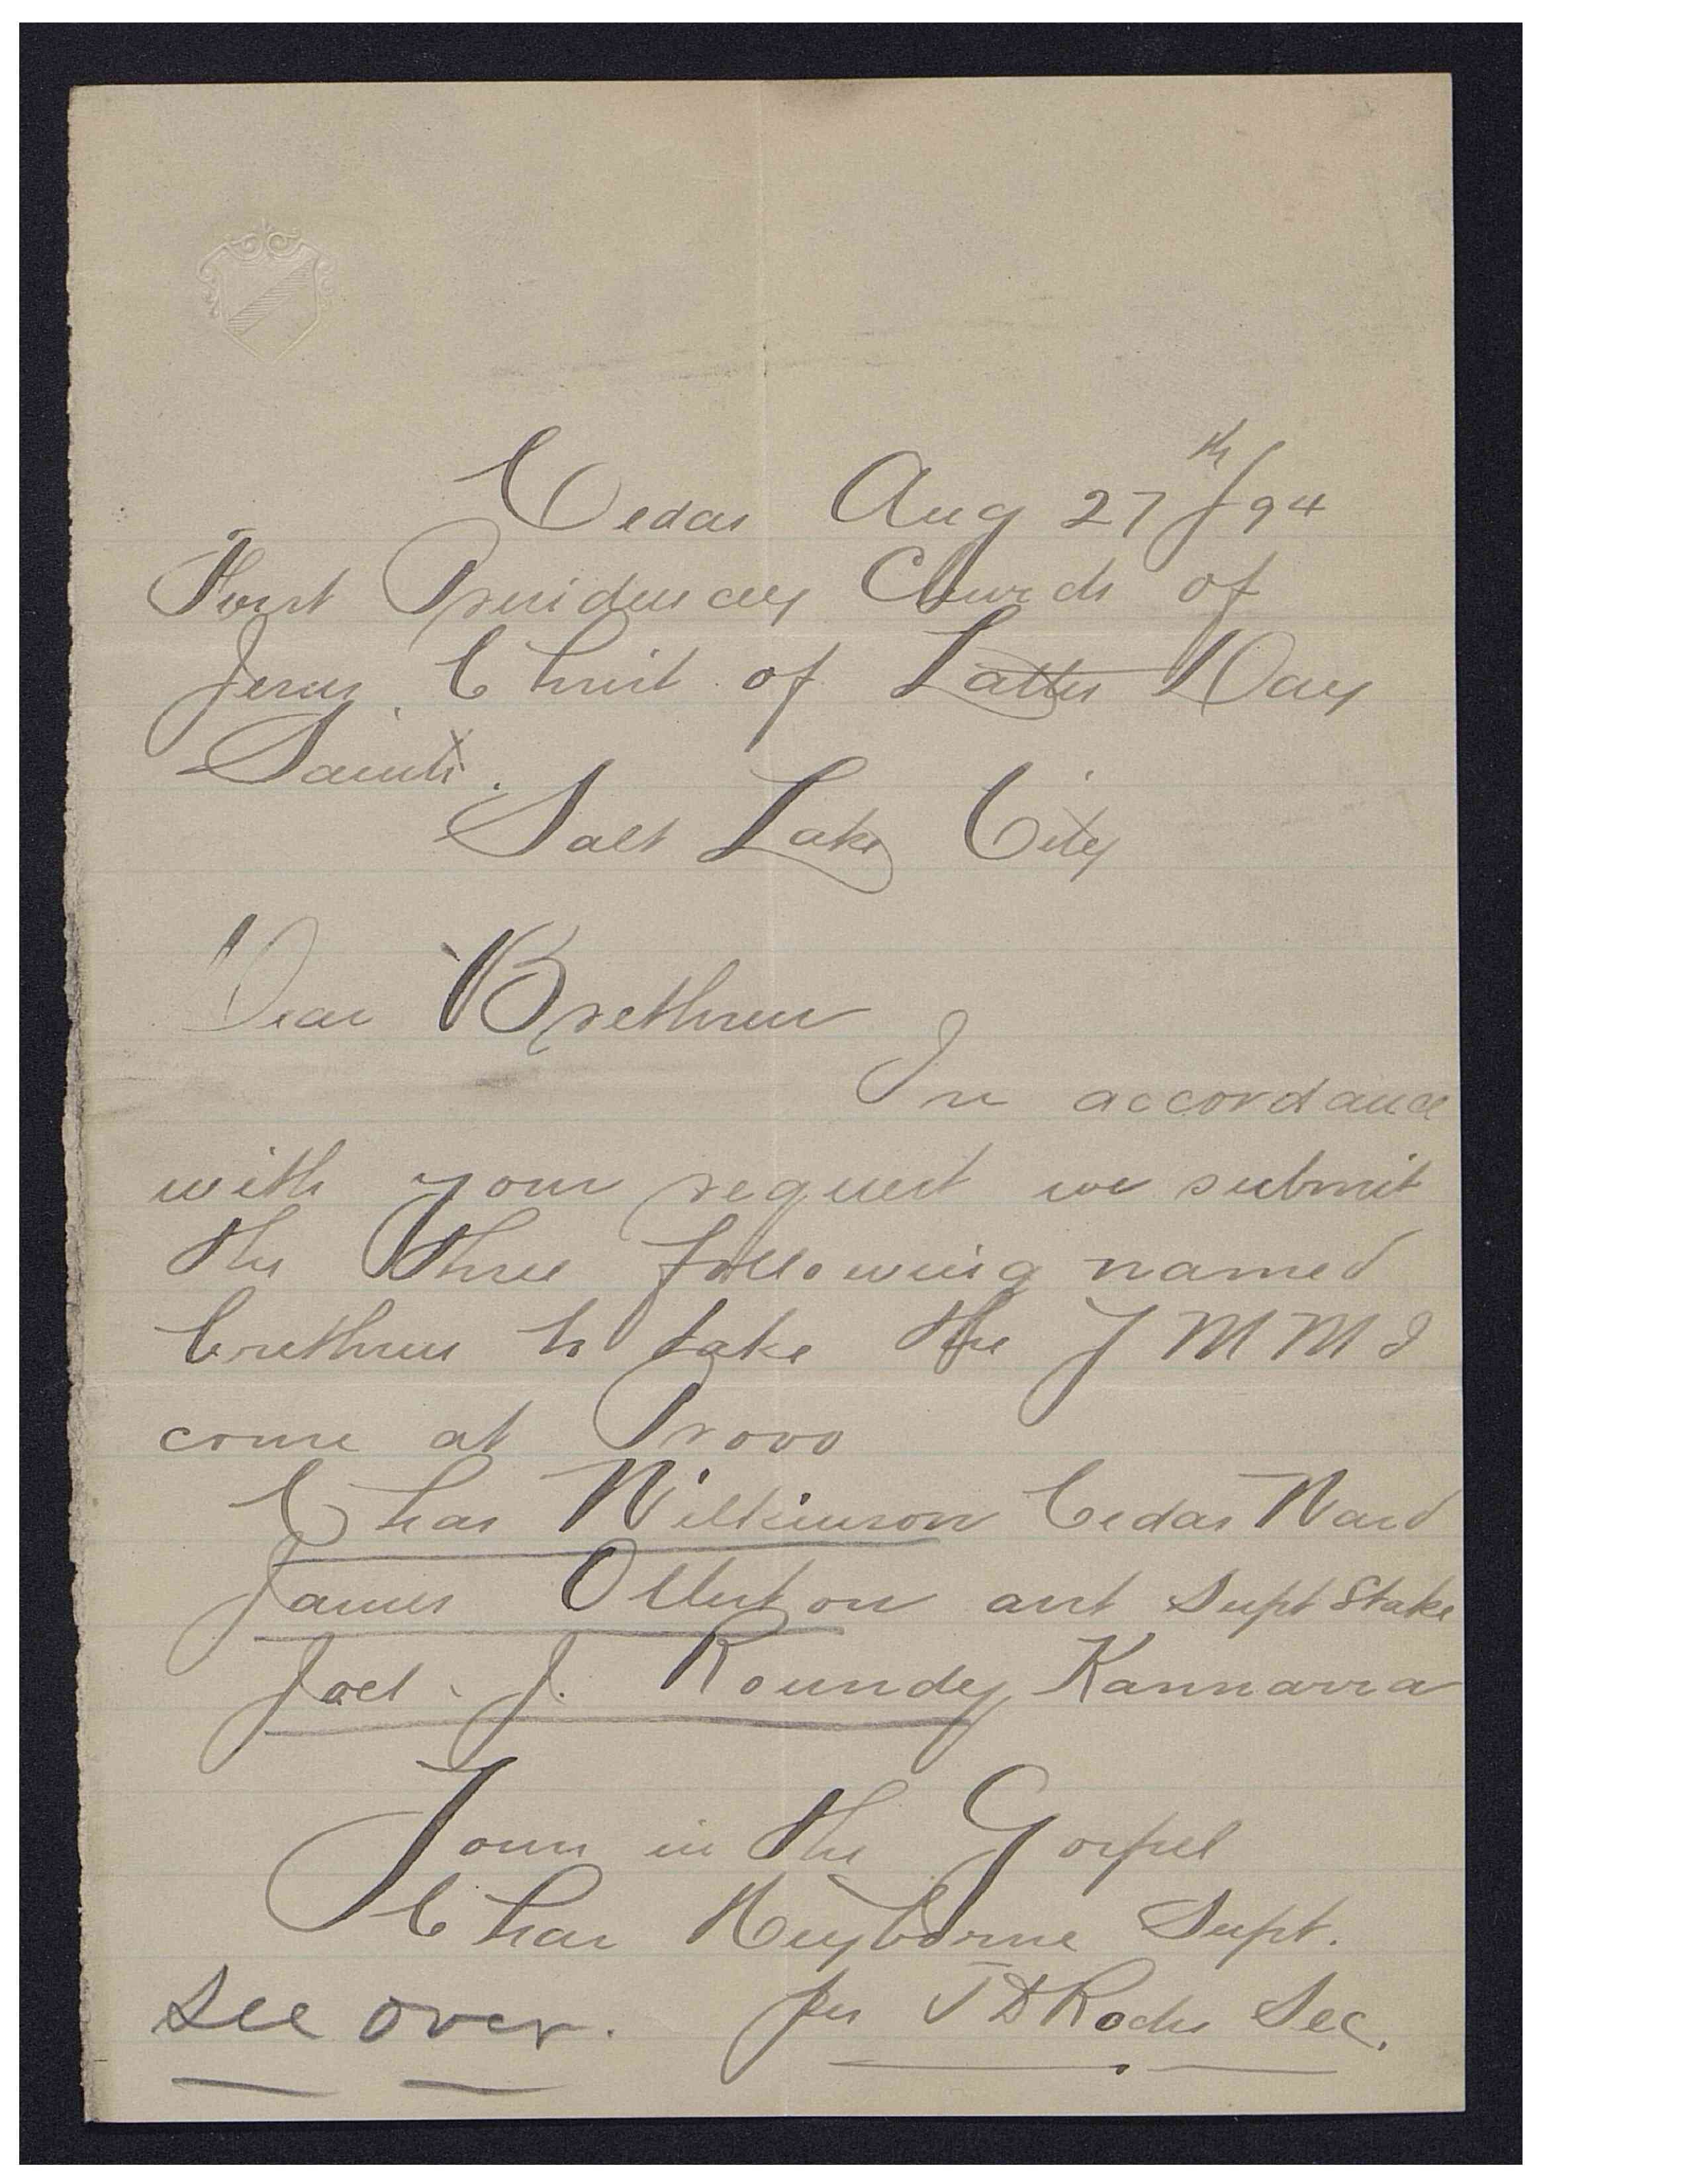 Cedar Aug 27th/94
First Presidency Church of
Jesus Christ of Latter Day
Saints.
Salt Lake City
Dear Brethren
In accordance
with your request we submit
the three following named
brethren to take the Y M M I
course at Provo
Chas Wilkinson Cedar Ward
James Ollerton asst Supt Stake
Joel. J. Roundy Kannarra
Yours in the Gospel
Chas Heyborne Supt.
per J D Roche Sec.
see over.